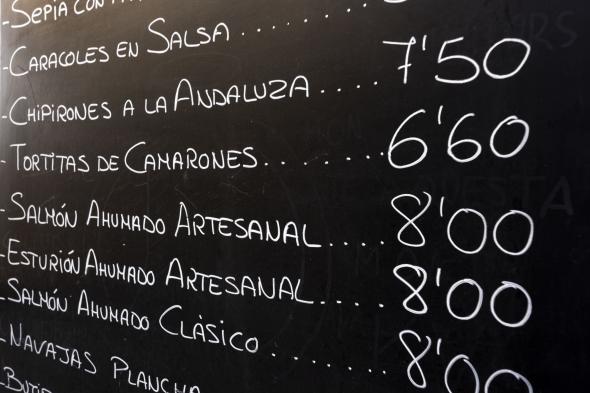 -SEPIA CON
-CARACOLES EN SALSA ........
-CHIPIRONES A LA ANDALUZA .... 7'50
-TORTITAS DE CAMARONES........ 6'60
-SALMÓN AHUMADO ARTESANAL .... 8'00
-ESTURIÓN AHUMADO ARTESANAL .... 8'00
-SALMÓN AHUMADO CLÁSICO ........ 8'00
-NAVAJAS PLANCHA